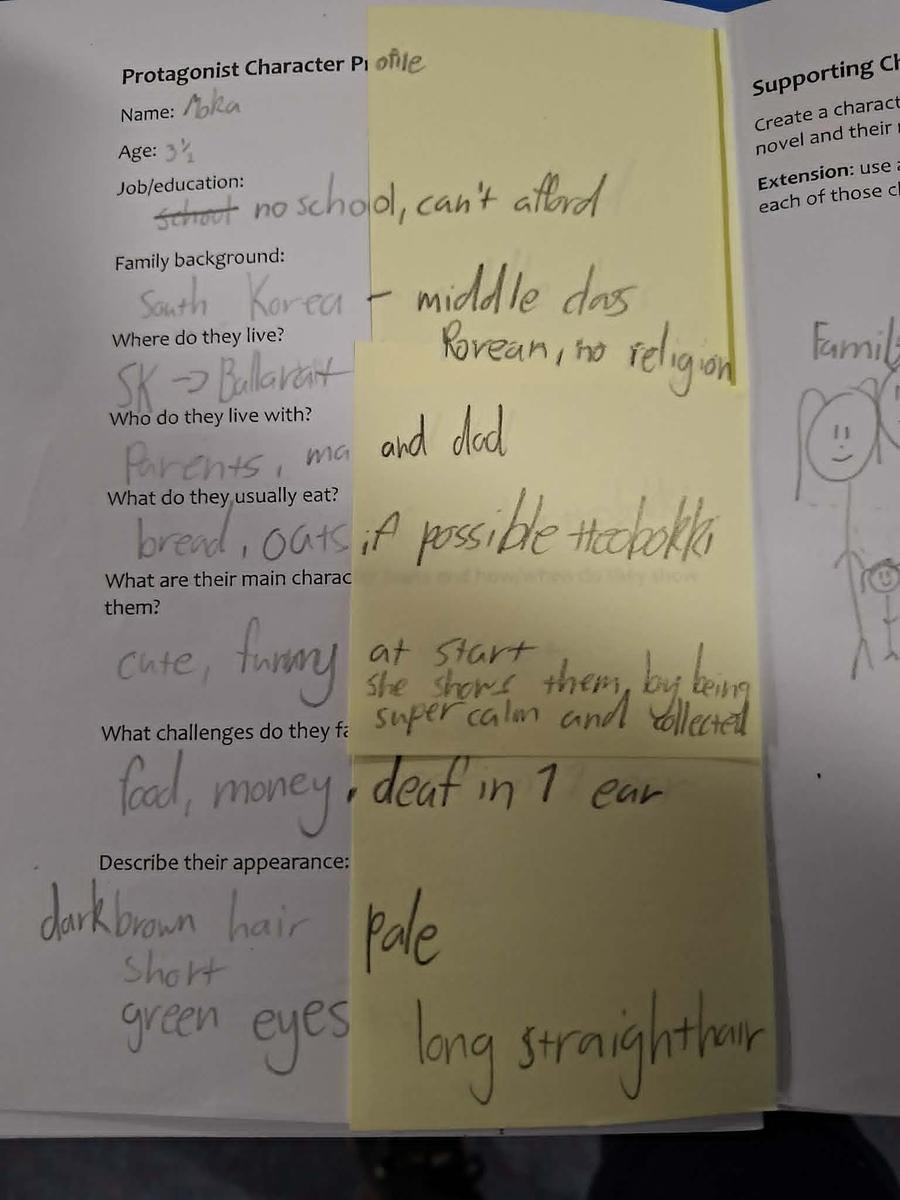 Protagonist Character Profile
Name: Moka
Age: 3½
Job/education:
school no school, can't afford
Family background:
South Korea - middle class
Korean, no religion
Where do they live?
SK → Ballarat
Who do they live with?
Parents, ma and dad
What do they usually eat?
bread, oats, if possible tteobokki
What are their main charac
them?
cute, funny at start
she shows them, by being
super calm and collected
What challenges do they fa
food, money, deaf in 1 ear
Describe their appearance:
dark brown hair pale
short
green eyes
long straight hair
Supporting Ch
Create a charact
novel and their
Extension: use a
each of those c
Famil